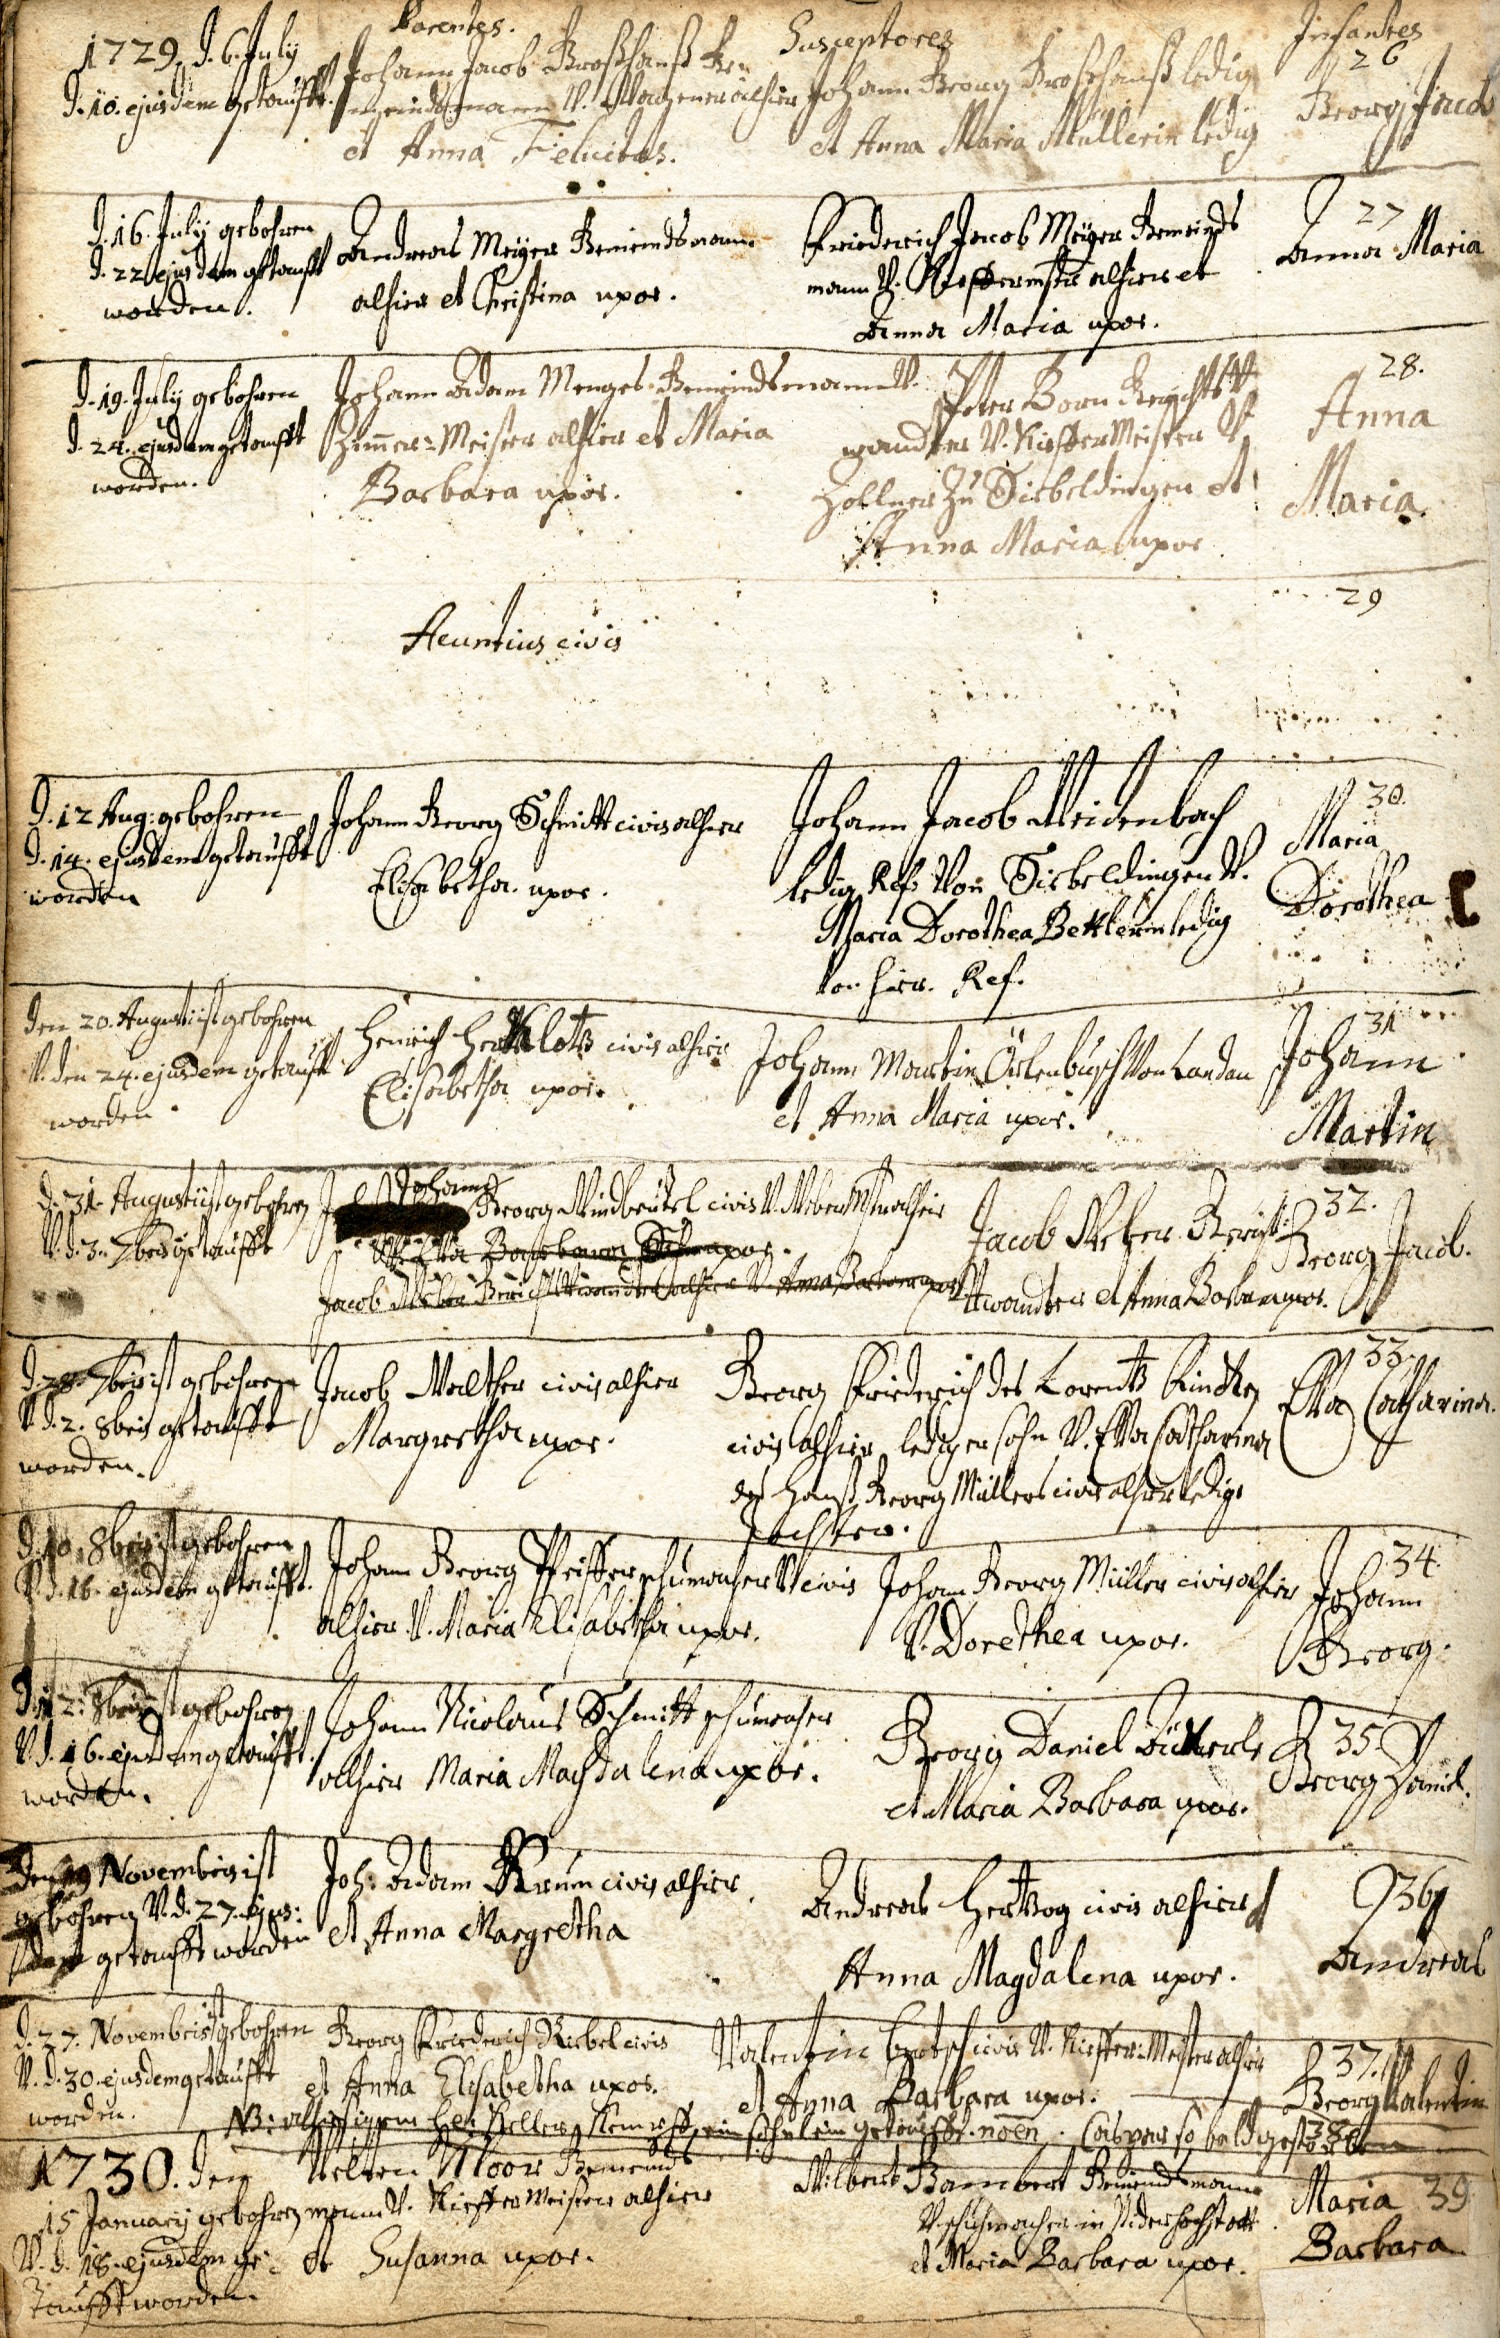 Parentes.
Susceptores
Infantes
1729. d. 6. July
d. 10. ejusdem getaufft.
Johann Jacob Großhanß Ge-
meindsmann V. Wagener alhier
et Anna Felicitas.
Johann Georg Großhanß ledig
et Anna Maria Müllerin ledig
26
Georg Jacob
d. 16. July gebohren
d. 22 ejusdem getaufft
worden.
Andreas Meyer Gemeindsmann
alhier et Christina uxor.
Friederich Jacob Meyer Gemeinds
mann V. alhier et
Anna Maria uxor.
27
Anna Maria
d. 19. July gebohren
d. 24. ejusdem getaufft
worden.
Johann Adam Menges Gemeindsmann V.
Zimmer-Meister alhier et Maria
Barbara uxor.
Peter Born Gerichts V
wandter V. Kieffer Meister V.
Zollner Zu Siebeldingen et
Anna Maria uxor
28.
Anna
Maria.
29
civis
d. 12 Aug: gebohren
d. 14. ejusdem getaufft
worden
Johann Georg Schmitt civis alhier
Elisabetha. uxor.
Johann Jacob Weidenbach
ledig Ref. Von Siebeldingen V.
Maria Dorothea Bettlerin ledig
von hier. Ref.
30.
Maria
Dorothea
den 20. Augusti ist gebohren
V. den 24. ejusdem getaufft
worden.
Henrich civis alhier
Elisabetha uxor.
Johann Martin Von Landau
et Anna Maria uxor.
31
Johann
Martin
d. 31. Augusti ist gebohren
V. d. 3. 7bris getaufft
Johann
Georg Windbeütel civis V. alhier
Eva Barbara uxor.
Jacob Weber Gerichts Vwandter alhier V. Anna Barbara uxor
Jacob Weber Gerichts
Vwandter et Anna Barbara uxor.
32.
Georg Jacob.
d. 28. 7bris ist gebohren
V. d. 2. 8bris getaufft
worden.
Jacob Walther civis alhier
Margretha uxor.
Georg Friderich des Lorentz
civis alhier lediger sohn V. Eva Catharina
des Hanß Georg Müllers civis alhier ledige
Tochter.
33.
Eva Catharina.
d. 10. 8bris ist gebohren
V. d. 16. ejusdem getaufft.
Johann Georg Pfeiffer schumacher V. civis
alhier. V. Maria Elisabetha uxor.
Johann Georg Müller civis alhier
V. Dorethea uxor.
34.
Johann
Georg.
d. 12. 8bris ist gebohren
V. d. 16. ejusdem getaufft.
worden.
Johann Nicolaus Schmitt schumacher
alhier Maria Magdalena uxor.
Georg Daniel
et Maria Barbara uxor.
35.
Georg Daniel.
den 19 Novembris ist
gebohren V. d. 27. ejus:
dem getaufft worden
Joh: Adam Krum civis alhier
et Anna Margretha
Andreas Hertzog civis alhier et
Anna Magdalena uxor.
36
Andreas
d. 27. Novembris ist gebohren
V. d. 30. ejusdem getaufft
worden.
Georg Friederich civis
et Anna Elisabetha uxor.
Valentin civis V. Kieffer-Meister alhier
et Anna Barbara uxor.
37.
Georg Valentin
NB: ein söhnlein getaufft. noen. Casper so bald gestorben
38
1730. den
15 January gebohren
V. d. 18. ejusdem ge-
taufft worden.
Velten Moor Gemeinds
mann V. Kieffer Meister alhier
et Susanna uxor.
Bambert Gemeindsmann
V. schumacher in Niderhochstatt
et Maria Barbara uxor.
39
Maria
Barbara